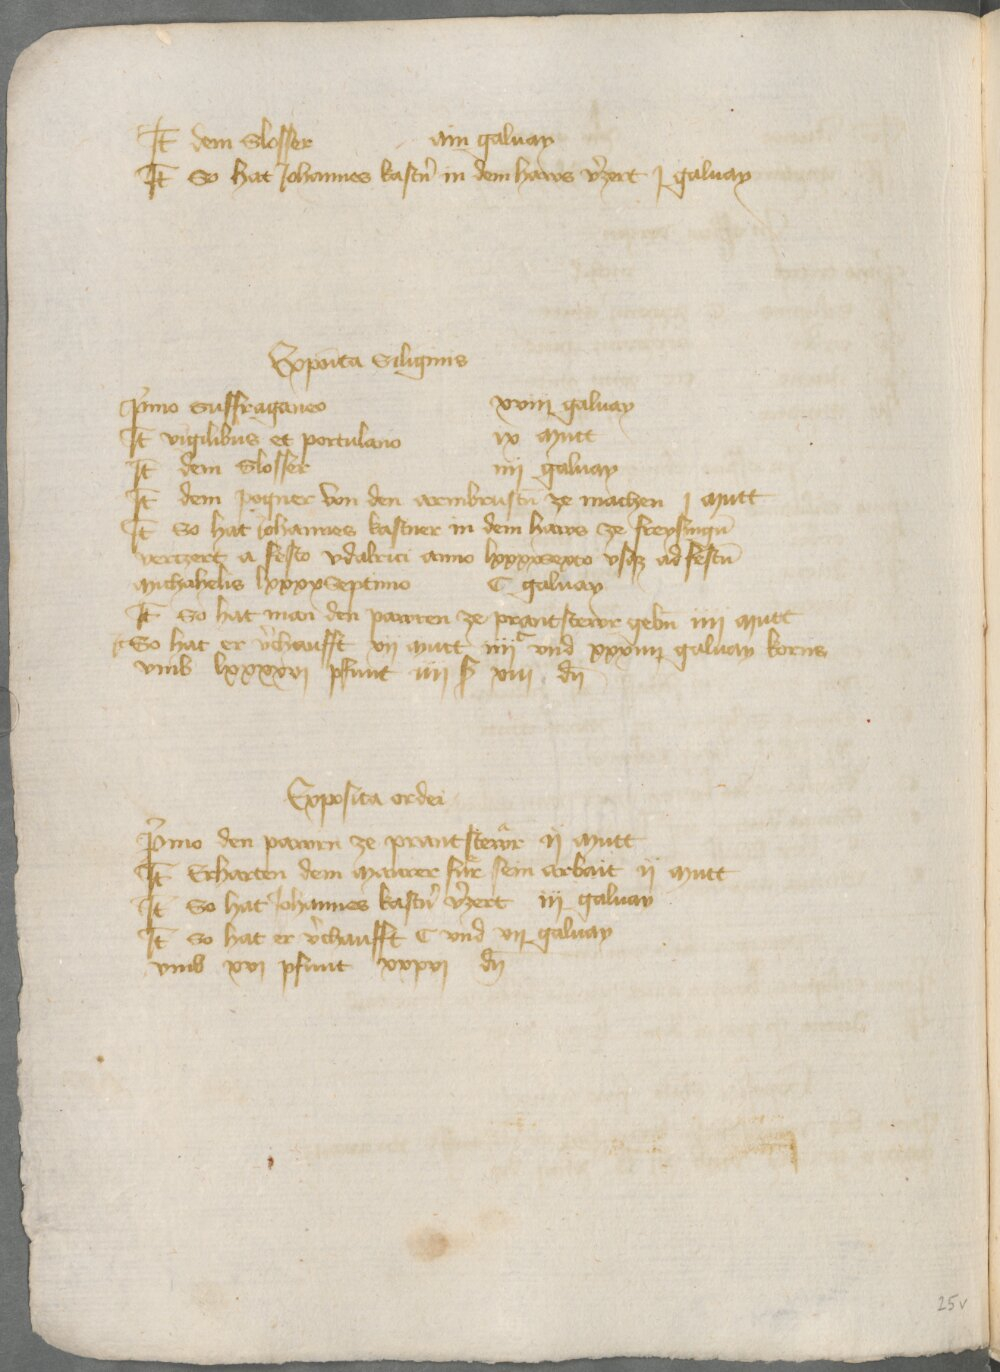 It dem Slosser ain galuay
It So hat Johannes kastn̄ in dem haws v̄zert j galuay
Expoīta Siliginis
P̄mo Suffraganeo xviij galuay
It vigilibus et portulano ix Mutt
It dem Slosser iiij galuay
It dem pogner von den armbrustn̄ ze machen j Mutt
It So hat Johannes kastner in dem haws ze freysingn̄
vertzert a festo vdalrici anno lxxxxsexto vsqz ad festū
Michahelis lxxxxSeptimo C galuay
It So hat man den pawren ze prantstewr gebn̄ iiij Mutt
So hat er v̄chaufft vij Mutt iiijC vnd xxxiiij galuay korns
vmb lxxxxvj pfunt iiij ß xiij dn̄
Exposita ordei
P̄mo den pawrn ze prantstewr ij Mutt
It Erharten dem Maurer für sein arbait ij Mutt
It So hat Johannes kastn̄ v̄zert iij galuay
It So hat er v̄chaufft C vnd vij galuay
vmb xvj pfunt xxxvj dn̄
25v